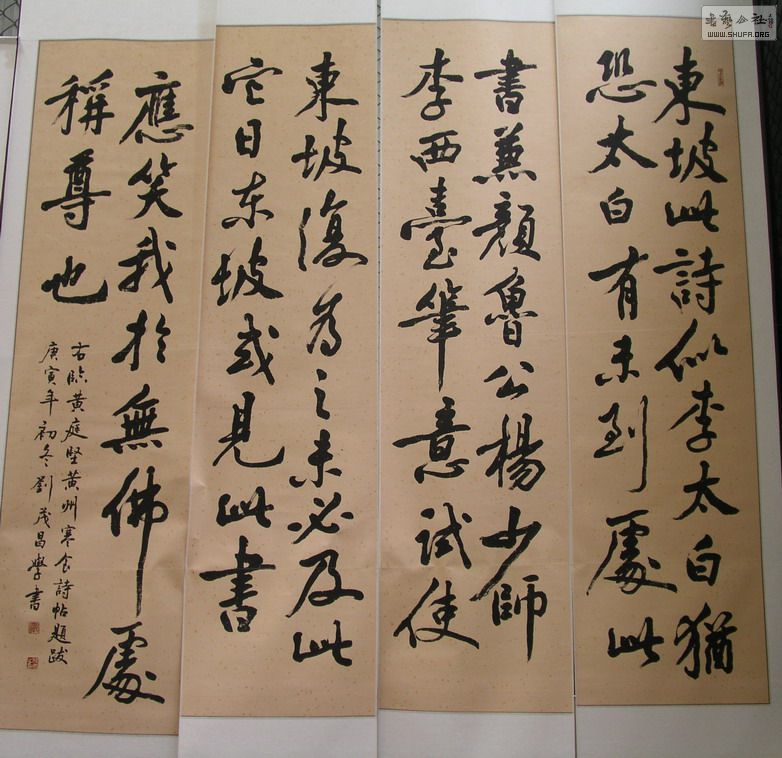 東坡此詩似李太白猶
恐太白有未到處此
書蒹顏魯公楊少師
李西臺筆意試使
東坡復為之未必及此
它日东坡或見此書
應笑我於無佛處
稱尊也
右臨黃庭坚黃州寒食詩帖題跋
庚寅年初冬劉茂昌學書
WWW.SHUFA.ORG